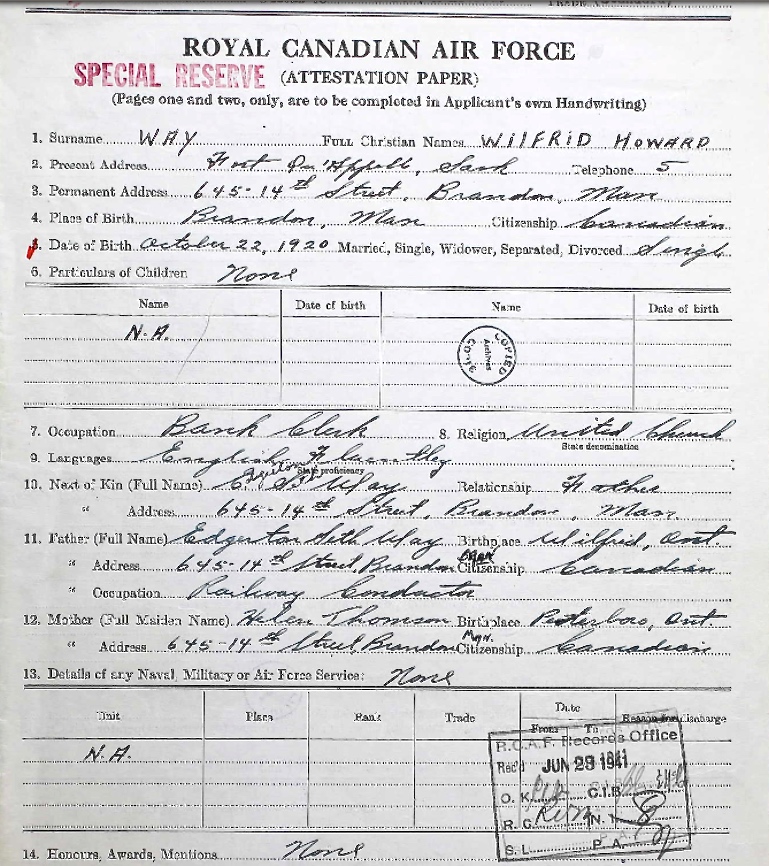 ROYAL CANADIAN AIR FORCE
SPECIAL RESERVE (ATTESTATION PAPER)
(Pages one and two, only, are to be completed in Applicant's own Handwriting)
1. Surname WAY Full Christian Names WILFRID HOWARD
2. Present Address Fort Qu'Appell, Sask Telephone 5
3. Permanent Address 645-14th Street, Brandon, Man
4. Place of Birth Brandon, Man Citizenship Canadian
5. Date of Birth October 22, 1920 Married, Single, Widower, Separated, Divorced Single
6. Particulars of Children None
Name Date of birth Name Date of birth
N.A.
COPIED Archives
7. Occupation Bank Clerk 8. Religion United Church
State denomination
9. Languages English Fluently
State proficiency
Edgerton
10. Next of Kin (Full Name) Way Relationship Father
" Address 645-14th Street, Brandon, Man
11. Father (Full Name) Edgerton Seth Way Birthplace Wilfrid, Ont
" Address 645-14th Street, Brandon Man Citizenship Canadian
" Occupation Railway Conductor
12. Mother (Full Maiden Name) Helen Thomson Birthplace Peterboro, Ont.
" Address 645-14th Street, Brandon Man. Citizenship Canadian
13. Details of any Naval, Military or Air Force Service: None
Unit Place Rank Trade Date Reason for discharge
From To
N.A.
R.C.A.F. Records Office
Rec'd JUN 23 1941
O.K. C.I.B.
R.C. N.
S.L. P.A.
14. Honours, Awards, Mentions None